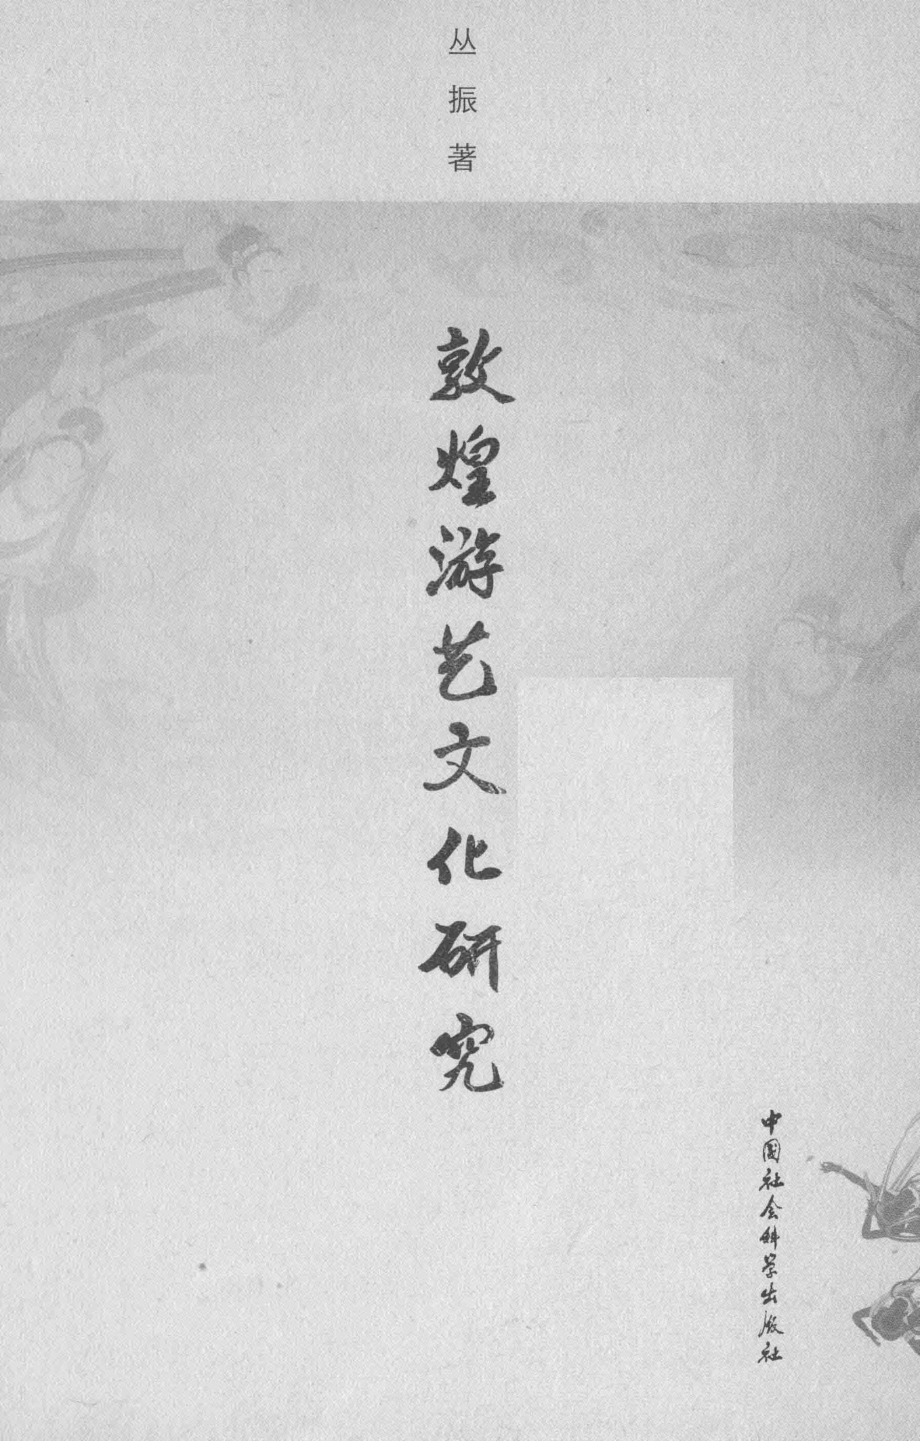 丛振著
敦煌游艺文化研究
中国社会科学出版社